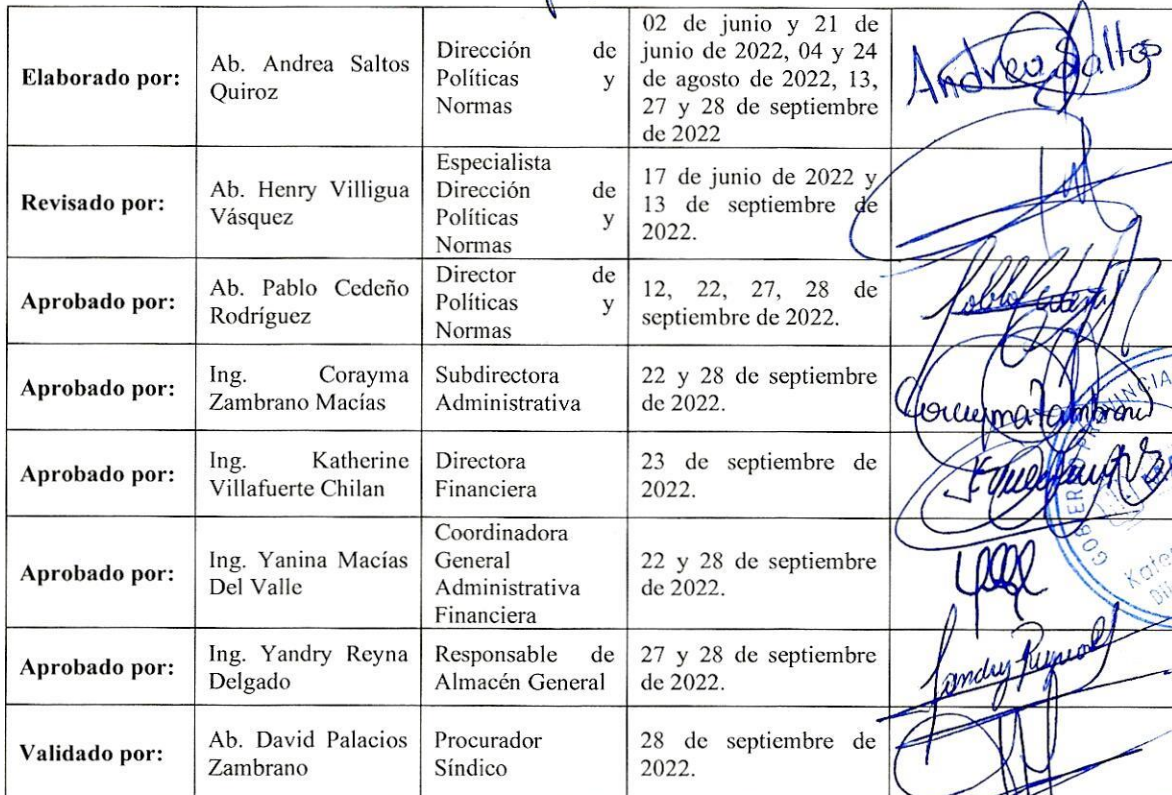 Elaborado por:
Ab. Andrea Saltos
Quiroz
Dirección de
Políticas y
Normas
02 de junio y 21 de
junio de 2022, 04 y 24
de agosto de 2022, 13,
27 y 28 de septiembre
de 2022
Andrea Saltos
Revisado por:
Ab. Henry Villigua
Vásquez
Especialista
Dirección de
Políticas y
Normas
17 de junio de 2022 y
13 de septiembre de
2022.
Aprobado por:
Ab. Pablo Cedeño
Rodríguez
Director de
Políticas y
Normas
12, 22, 27, 28 de
septiembre de 2022.
Aprobado por:
Ing. Corayma
Zambrano Macías
Subdirectora
Administrativa
22 y 28 de septiembre
de 2022.
Aprobado por:
Ing. Katherine
Villafuerte Chilan
Directora
Financiera
23 de septiembre de
2022.
Aprobado por:
Ing. Yanina Macías
Del Valle
Coordinadora
General
Administrativa
Financiera
22 y 28 de septiembre
de 2022.
Aprobado por:
Ing. Yandry Reyna
Delgado
Responsable de
Almacén General
27 y 28 de septiembre
de 2022.
Validado por:
Ab. David Palacios
Zambrano
Procurador
Síndico
28 de septiembre de
2022.